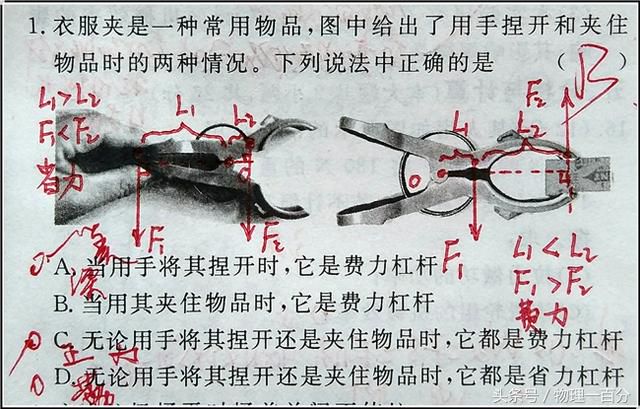 1. 衣服夹是一种常用物品,图中给出了用手捏开和夹住
物品时的两种情况。下列说法中正确的是 ( B )
L₁>L₂
F₁<F₂
省力
L₁
L₂
F₁
F₂
F₂
L₁
L₂
O
F₁
L₁<L₂
F₁>F₂
费力
A. 当用手将其捏开时,它是费力杠杆
B. 当用其夹住物品时,它是费力杠杆
C. 无论用手将其捏开还是夹住物品时,它都是费力杠杆
D. 无论用手将其捏开还是夹住物品时,它都是省力杠杆
头条号/物理一百分